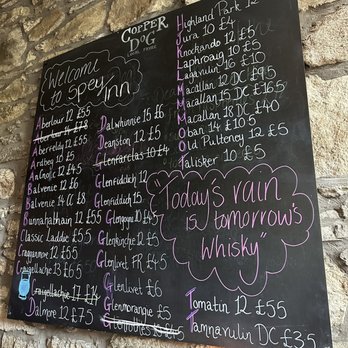 COPPER
DOG
Welcome
to Spey
Inn
Aberlour 12 £5.5
Aberfeldy 12 £5.5
Ardbeg 10 £5
AnCnoc 12 £4.5
Balvenie 12 £6
Balvenie 14 £8
Bunnahabhain 12 £5.5
Classic Laddie £5.5
Cragganmore 12 £5.5
Craigellachie 13 £6.5
Craigellachie 17 £14
Dalmore 12 £7.5
Dalwhinnie 15 £6
Deanston 12 £5
Glenfarclas 10 £4
Glenfiddich 12
Glenfiddich 15
Glengoyne 10 £4
Glenkinchie 12 £5
Glenlivet FR £4.5
Glenlivet £6
Glenmorangie £5
Highland Park 12
Jura 10 £4
Knockando 12 £5
Laphroaig 10 £5
Lagavulin 16 £10
Macallan 12 DC £9.5
Macallan 15 DC £16.5
Macallan 18 DC £40
Oban 14 £10.5
Old Pulteney 12 £5
Talisker 10 £5
"Today's rain
is tomorrow's
whisky"
Tomatin 12 £5.5
Tamnavulin DC £3.5